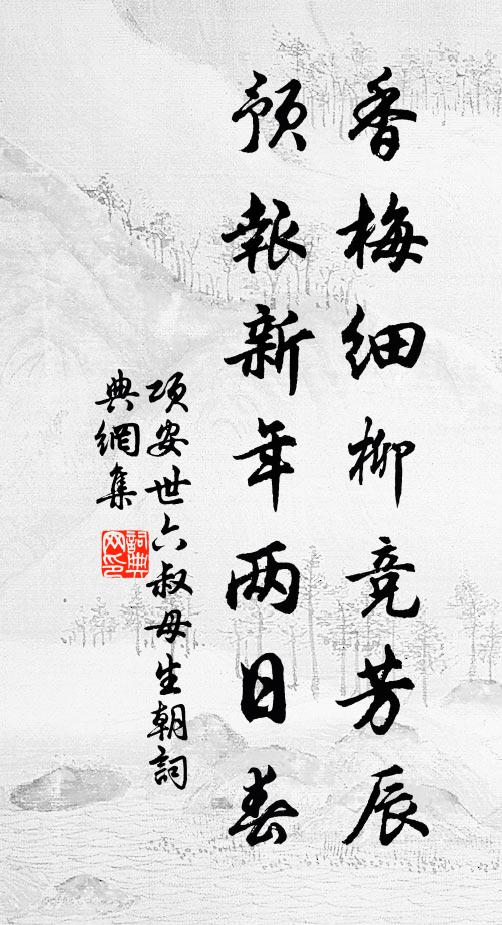 香梅细柳竞芳辰
预报新年两日春
项安世六叔母生朝詞
典網集
詞典网印